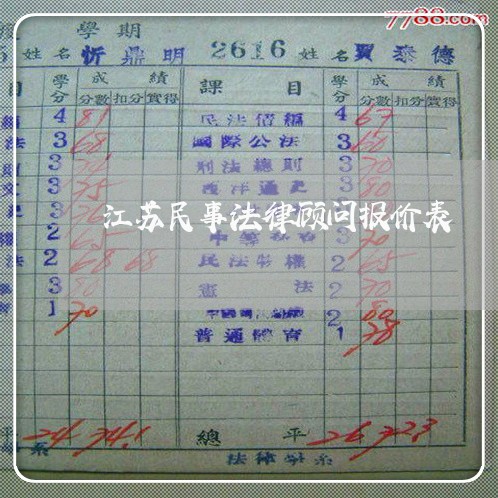 7788.com
學期
姓名 忻鼎明 2616 姓名 賈泰德
目 學分 成績 課目 學分 成績
分數 扣分 實得 分數 扣分 實得
4 81 民法債編 4 67
法 3 68 國際公法 3 60
3 刑法總則 3 70
3 75 西洋通史 3 80
江苏民事法律顾问报价表
2 65 3 70
法 2 68 68 民法物權 2 65
3 80 憲法 2 70
1 70 2 80
普通體育 1 78
平 24 74.1 總平 26 72.3
系 法律學系